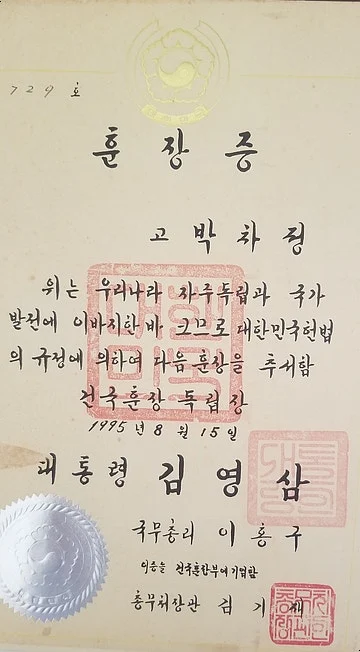 729 호
훈장증
고 박차정
위는 우리나라 자주독립과 국가
발전에 이바지한바 크므로 대한민국헌법
의 규정에 의하여 다음 훈장을 추서함
건국훈장 독립장
1995년 8월 15일
대통령 김영삼
국무총리 이홍구
이증을 건국훈장부에 기입함
총무처장관 김기재